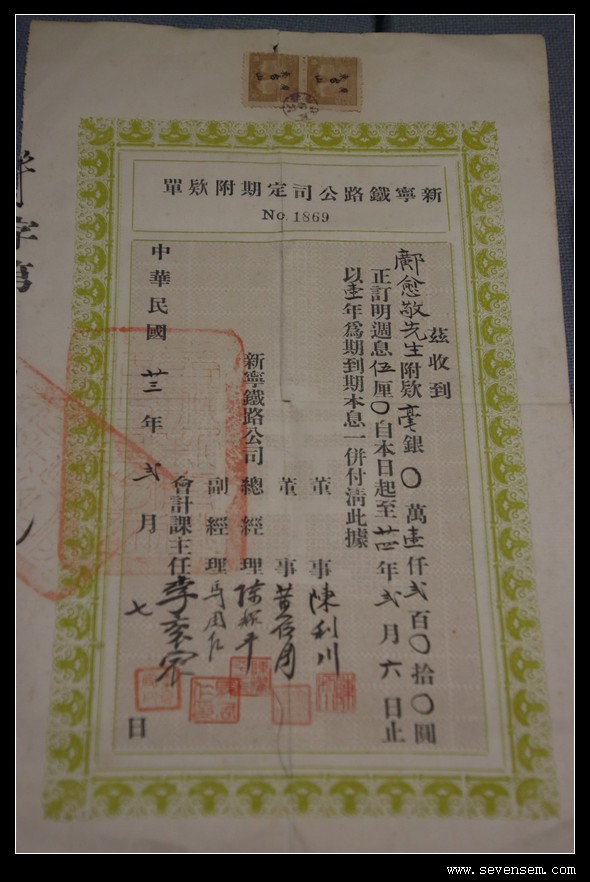 新寧鐵路公司定期附欵單
No. 1869
茲收到
鄺愈敬先生附欵毫銀〇萬壹仟弍百〇拾〇圓
正訂明週息伍厘〇自本日起至廿四年弍月六日止
以壹年爲期到期本息一併付清此據
董事陳利川
董事
新寧鐵路公司總經理
副經理
會計課主任李
中華民國廿三年弍月七日
www.sevensem.com